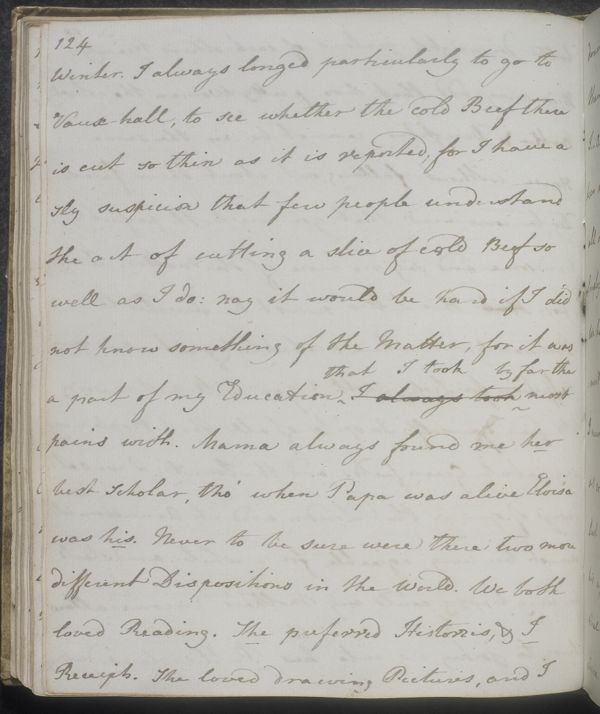 124
Winter. I always longed particularly to go to
Vaux-hall, to see whether the cold Beef there
is cut so thin as it is reported, for I have a
sly suspicion that few people understand
the act of cutting a slice of cold Beef so
well as I do: nay it would be hard if I did
not know something of the Matter, for it was
that I took by far the
a part of my Education ^ I always took ^ most
pains with. Mama always found me her
best Scholar, tho' when Papa was alive Eloisa
was his. Never to be sure were there two more
different Dispositions in the World. We both
loved Reading. She preferred Histories, & I
Receipts. She loved drawing Pictures, and I